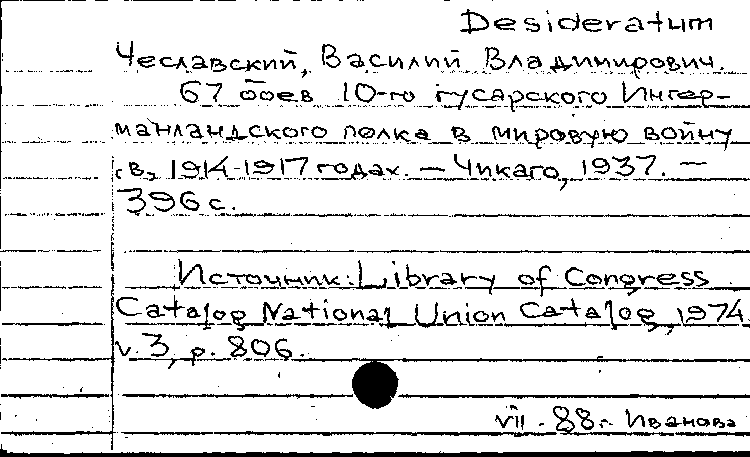 Desideratum
Чеславский, Василий Владимирович.
67 боев 10-го гусарского Ингер-
манландского полка в мировую войну
в 1914-1917 годах. — Чикаго, 1937. —
396 с.
Источник: Library of Congress
Catalog National Union Catalog, 1974
v. 3, p. 806.
VII - 88 г. Иванова